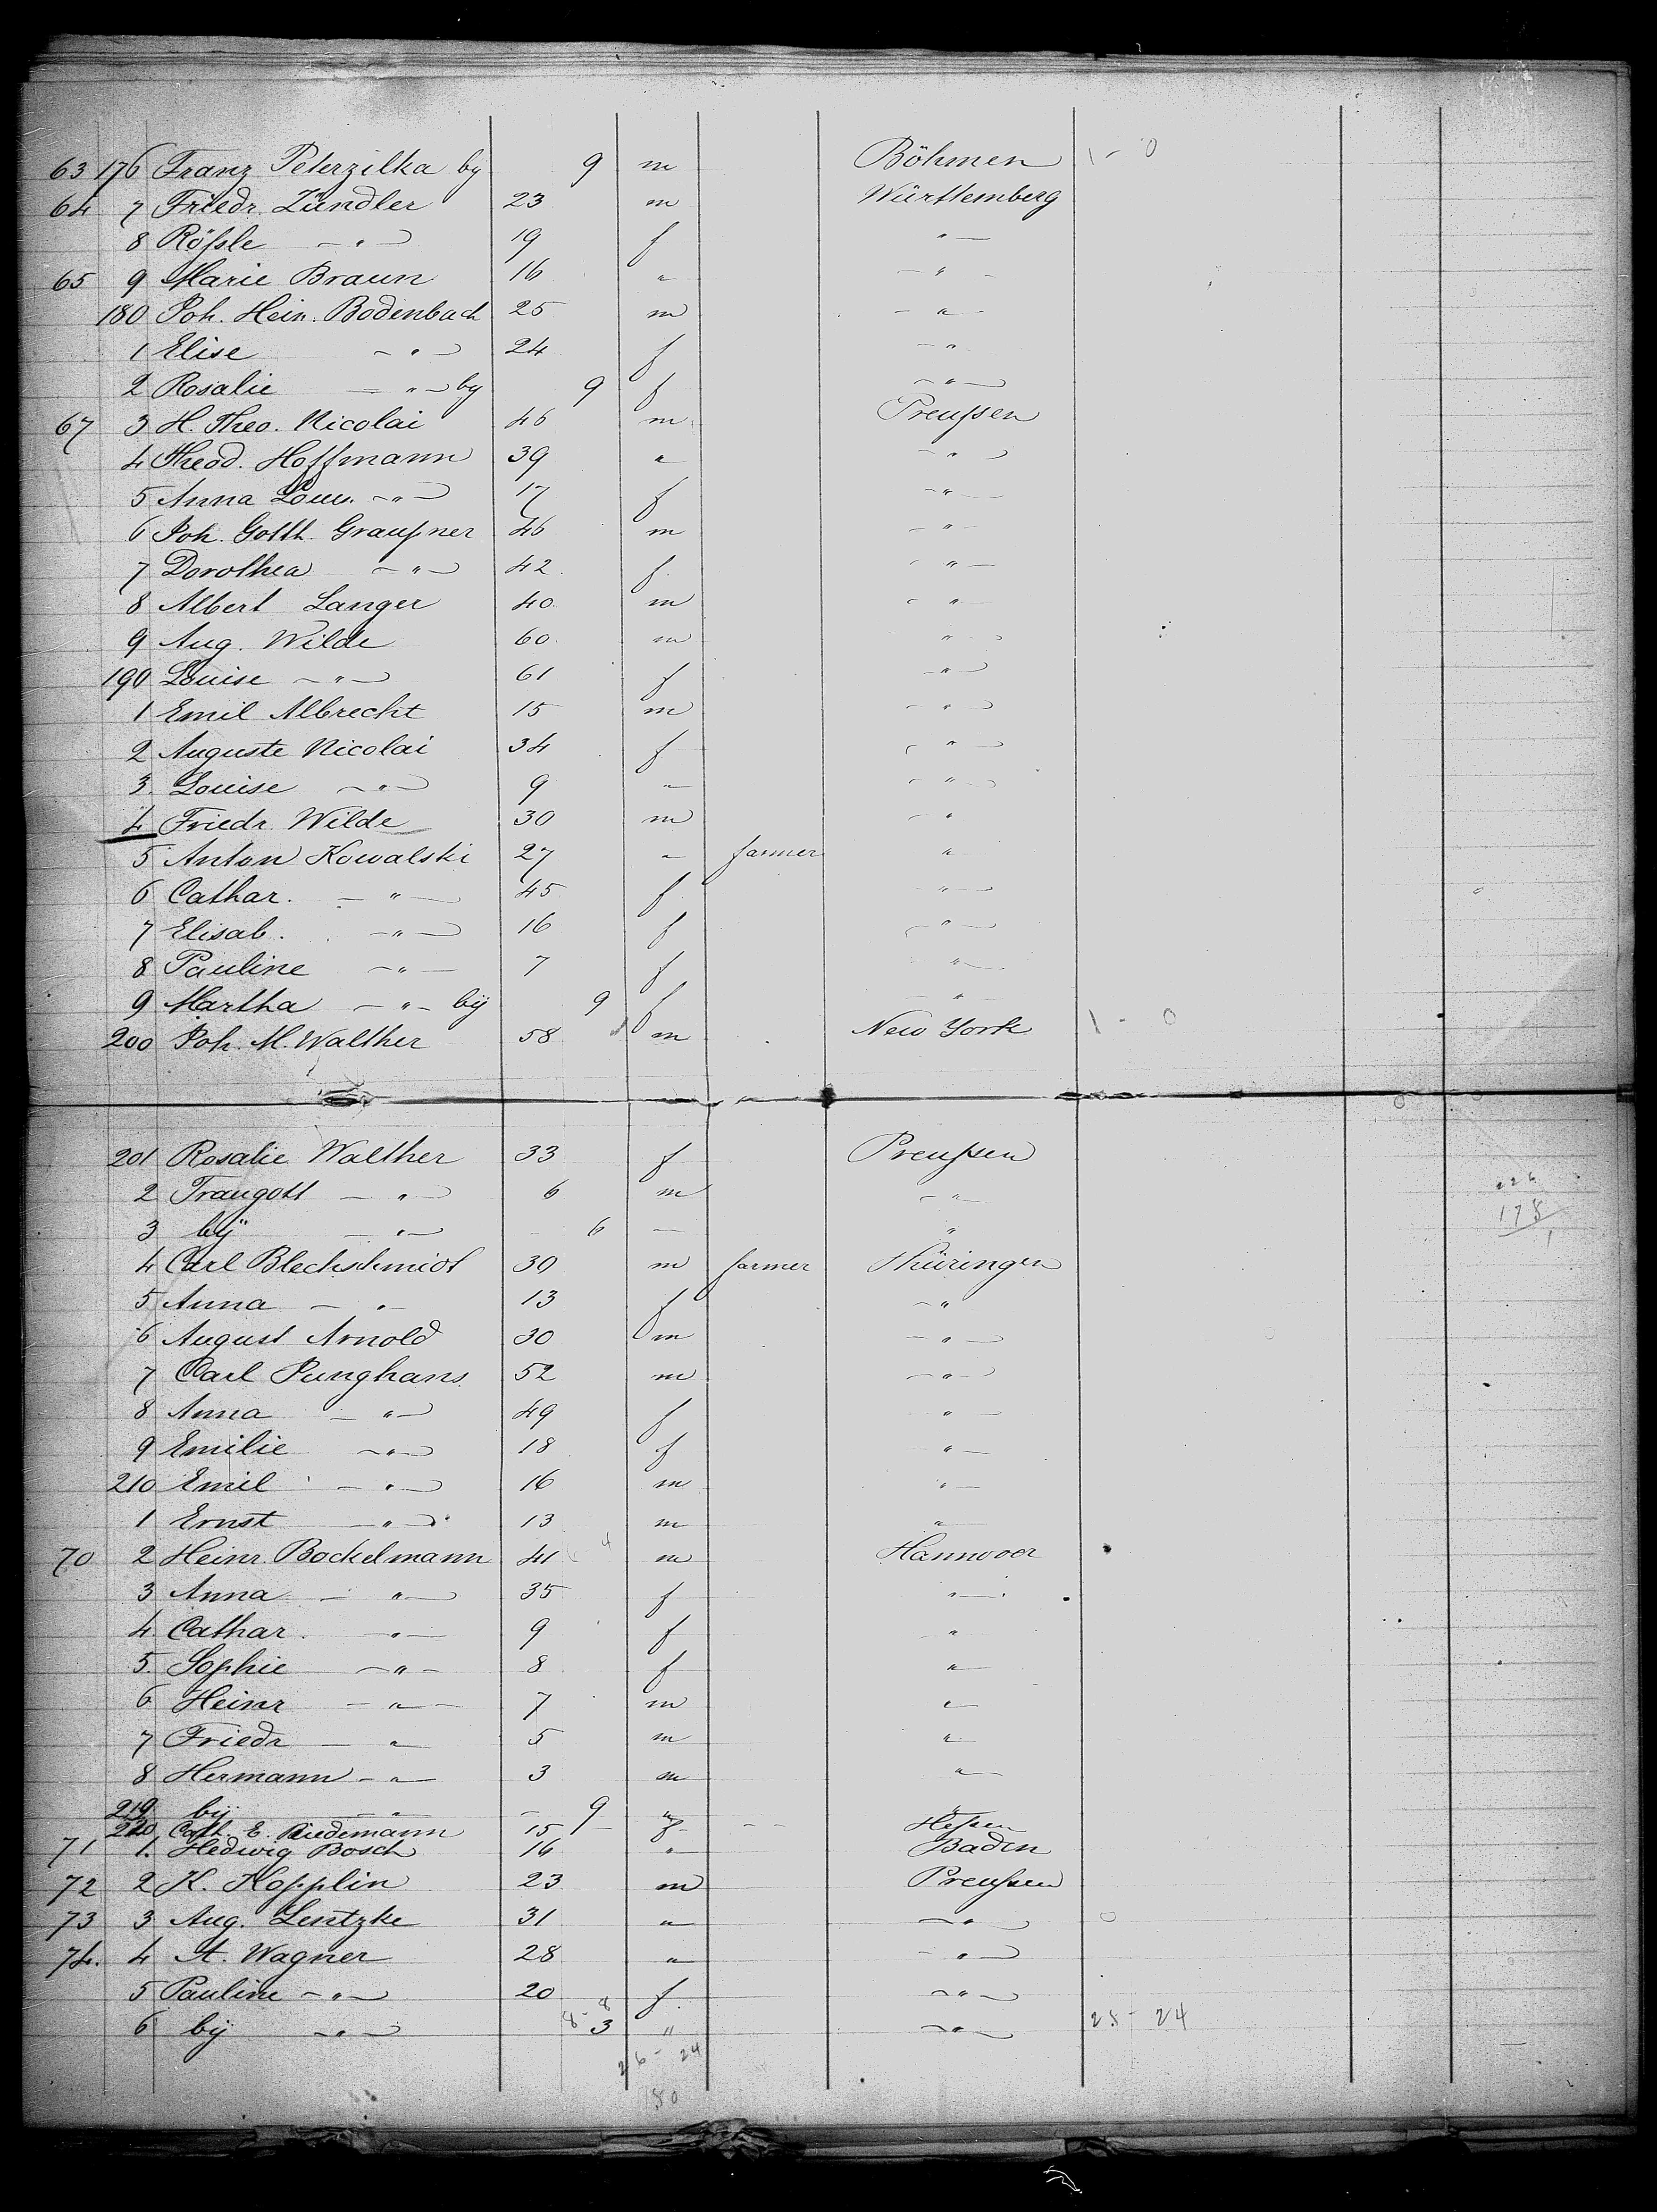 63 176 Franz Peterzilka by 9 m Böhmen 1 - 0
64 7 Friedr. Zündler 23 m Württemberg
8 Rößle - " - 19 f "
65 9 Marie Braun 16 " "
180 Joh. Hein. Bodenbach 25 m "
1 Elise - " - 24 f "
2 Rosalie - " - by 9 f "
67 3 H. Theo. Nicolai 46 m Preußen
4 Theod. Hoffmann 39 " "
5 Anna Louis. - " - 17 f "
6 Joh. Gotth. Graußner 46 m "
7 Dorothea - " - 42 f "
8 Albert Langer 40 m "
9 Aug. Wilde 60 m "
190 Louise - " - 61 f "
1 Emil Albrecht 15 m "
2 Auguste Nicolai 34 f "
3. Louise - " - 9 " "
4 Friedr. Wilde 30 m "
5 Anton Kowalski 27 " farmer "
6 Cathar. - " - 45 f "
7 Elisab. - " - 16 f "
8 Pauline - " - 7 f "
9 Martha - " - bÿ 9 f "
200 Joh. M. Walther 58 m New York 1 - 0
201 Rosalie Walther 33 f Preußen
2 Traugott - " - 6 m "
3 bÿ - " - 6 - "
4 Carl Blechschmidt 30 m farmer Thüringen
5 Anna - " - 13 f "
6 August Arnold 30 m "
7 Carl Junghans 52 m "
8 Anna - " - 49 f "
9 Emilie - " - 18 f "
210 Emil - " - 16 m "
1 Ernst - " - 13 m "
70 2 Heinr. Bockelmann 41 m Hannover
3 Anna - " - 35 f "
4 Cathar. - " - 9 f "
5. Sophie - " - 8 f "
6 Heinr - " - 7 m "
7 Friedr - " 5 m "
8 Hermann - " - 3 m "
219 bÿ - " - 9 " "
220 Cath. E. Riedemann 15 f Heßen
71 1. Hedwig Bosch 16 " Baden
72 2 K. Kopplin 23 m Preußen
73 3 Aug. Lentzke 31 " "
74. 4 A. Wagner 28 " "
5 Pauline - " - 20 f "
6 bÿ - " - 3 " " 25 - 24
8 - 8
26 - 24